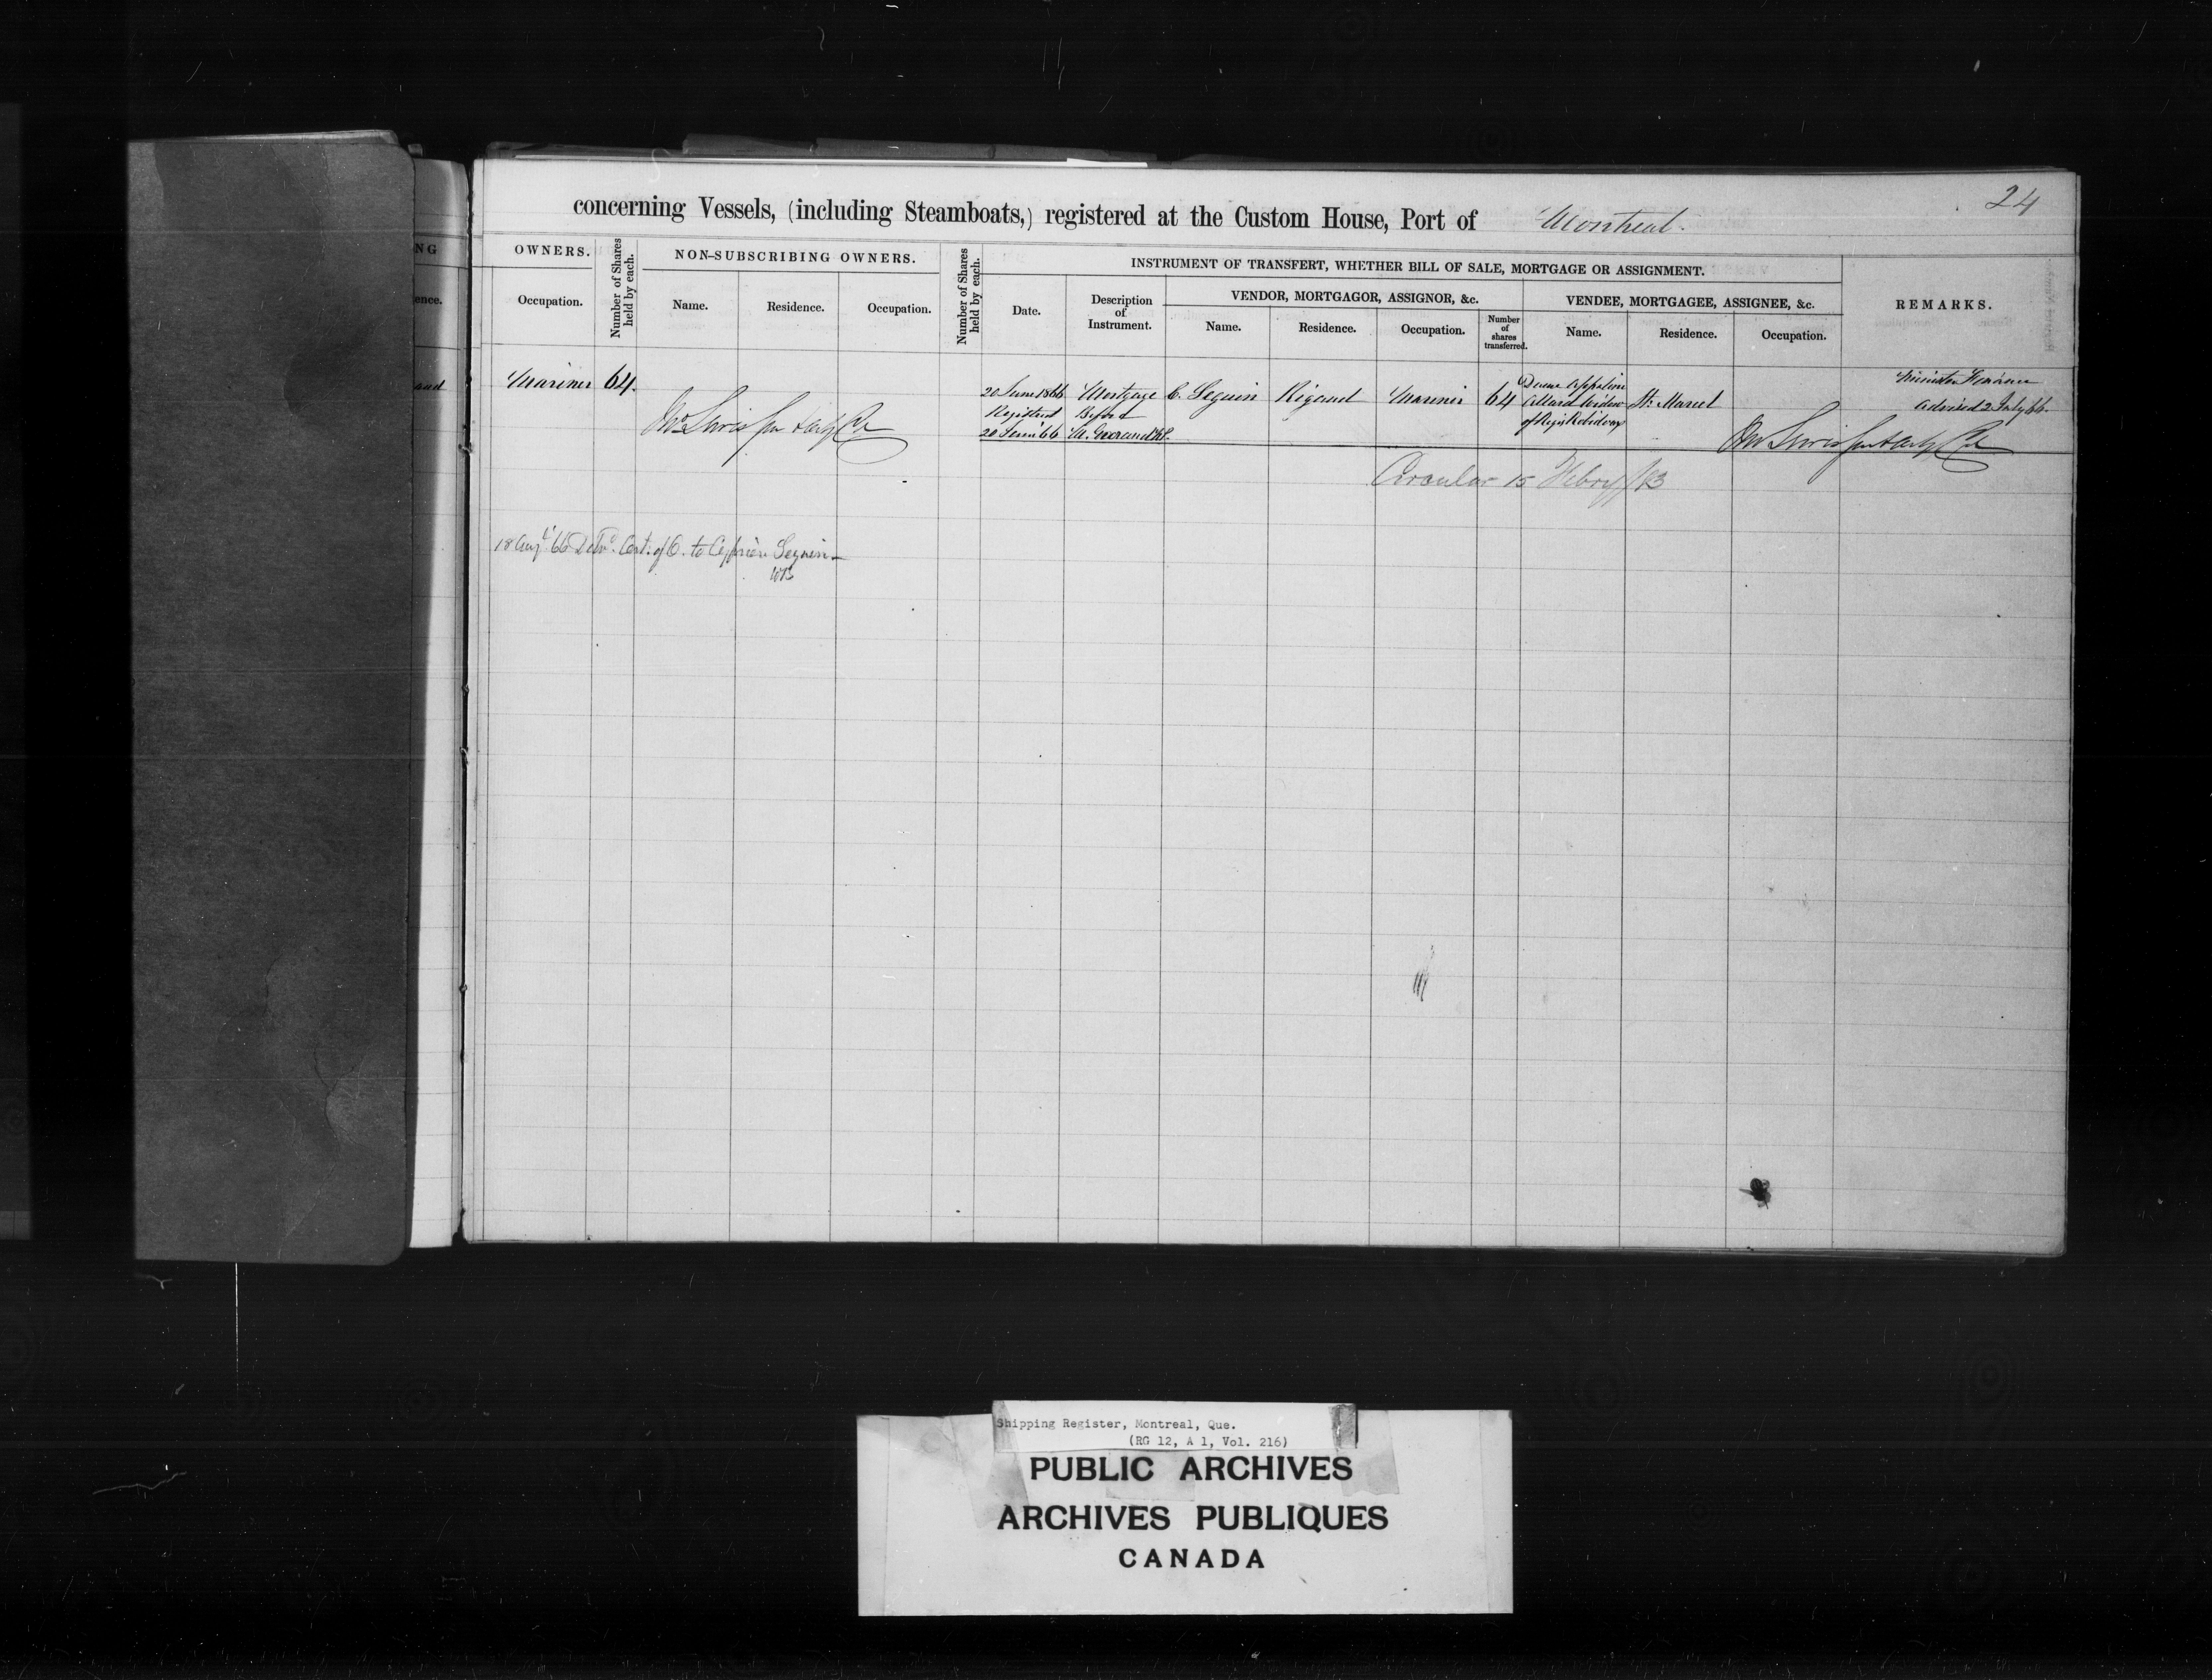 24
concerning Vessels, (including Steamboats,) registered at the Custom House, Port of Montreal.
NG
ence.
aud
OWNERS.
Occupation.
Number of Shares held by each.
NON-SUBSCRIBING OWNERS.
Name. Residence. Occupation.
Number of Shares held by each.
INSTRUMENT OF TRANSFERT, WHETHER BILL OF SALE, MORTGAGE OR ASSIGNMENT.
Date.
Description of Instrument.
VENDOR, MORTGAGOR, ASSIGNOR, &c.
Name. Residence. Occupation.
Number of shares transferred.
VENDEE, MORTGAGEE, ASSIGNEE, &c.
Name. Residence. Occupation.
REMARKS.
Mariner 64.
20 June 1866 Mortgage C. Seguin Rigaud Mariner 64
Registered Before
20 June 66
Allard Widow St. Marcel
Minister Finance
advised 2 July 66.
Circular 15 Febry/83
18 Augt 66 Delvd. Cert. of O. to Cyprien Seguin
Shipping Register, Montreal, Que.
(RG 12, A 1, Vol. 216)
PUBLIC ARCHIVES
ARCHIVES PUBLIQUES
CANADA